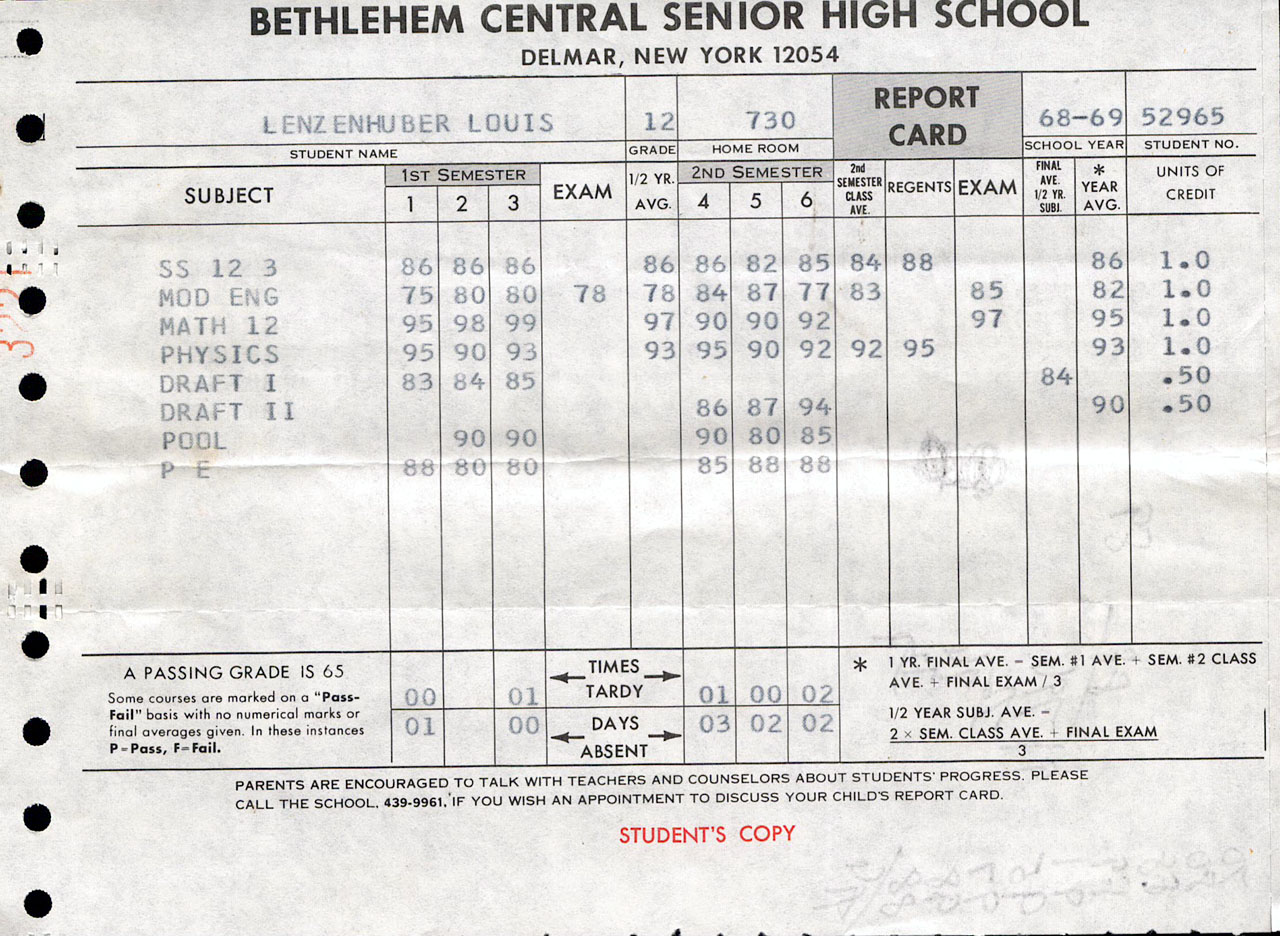 BETHLEHEM CENTRAL SENIOR HIGH SCHOOL
DELMAR, NEW YORK 12054
LENZENHUBER LOUIS 12 730 REPORT CARD 68-69 52965
STUDENT NAME GRADE HOME ROOM SCHOOL YEAR STUDENT NO.
SUBJECT 1ST SEMESTER 1 2 3 EXAM 1/2 YR. AVG. 2ND SEMESTER 4 5 6 2nd SEMESTER CLASS AVE. REGENTS EXAM FINAL AVE. 1/2 YR. SUBJ. * YEAR AVG. UNITS OF CREDIT
SS 12 3 86 86 86 86 86 82 85 84 88 86 1.0
MOD ENG 75 80 80 78 78 84 87 77 83 85 82 1.0
MATH 12 95 98 99 97 90 90 92 97 95 1.0
PHYSICS 95 90 93 93 95 90 92 92 95 93 1.0
DRAFT I 83 84 85 84 .50
DRAFT II 86 87 94 90 .50
POOL 90 90 90 80 85
P E 88 80 80 85 88 88
A PASSING GRADE IS 65
Some courses are marked on a "Pass-
Fail" basis with no numerical marks or
final averages given. In these instances
P=Pass, F=Fail.
00 01 TIMES TARDY 01 00 02
01 00 DAYS ABSENT 03 02 02
* 1 YR. FINAL AVE. - SEM. #1 AVE. + SEM. #2 CLASS
AVE. + FINAL EXAM / 3
1/2 YEAR SUBJ. AVE. -
2 × SEM. CLASS AVE. + FINAL EXAM
3
PARENTS ARE ENCOURAGED TO TALK WITH TEACHERS AND COUNSELORS ABOUT STUDENTS' PROGRESS. PLEASE
CALL THE SCHOOL, 439-9961, IF YOU WISH AN APPOINTMENT TO DISCUSS YOUR CHILD'S REPORT CARD.
STUDENT'S COPY